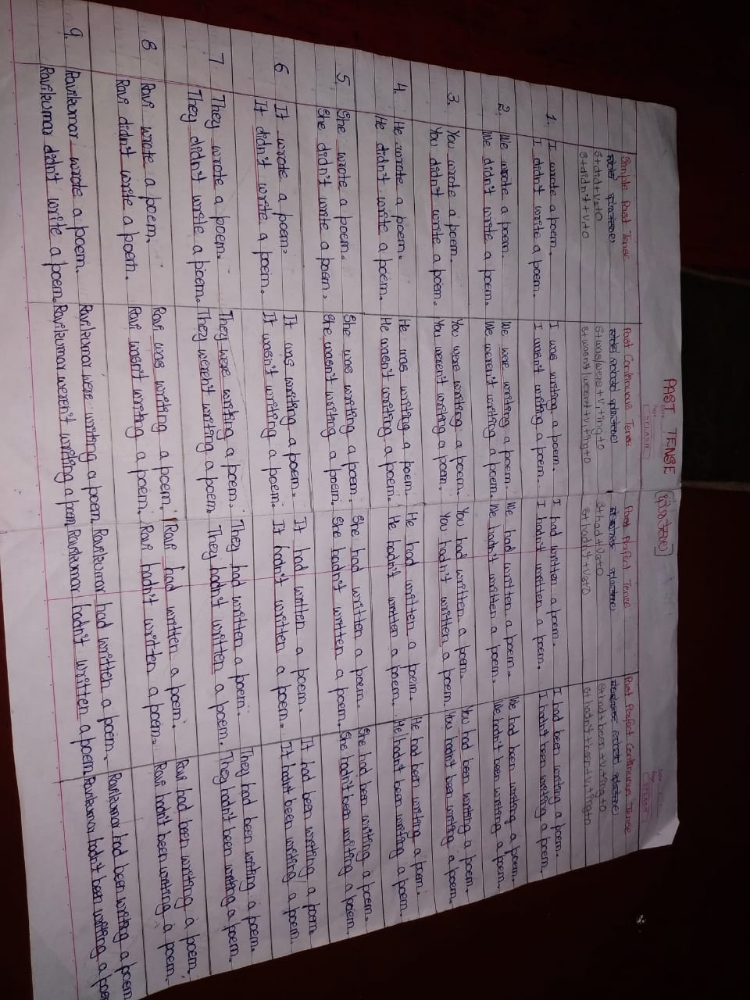 PAST TENSE
Simple Past Tense
Past Continuous Tense
Past Perfect Tense
Past Perfect Continuous Tense
S+did+V2+O
S+was/were+V1+ing+O
S+had+V3+O
S+had+been+V1+ing+O
S+didn't+V1+O
S+wasn't/weren't+V1+ing+O
S+hadn't+V3+O
S+hadn't+been+V1+ing+O
1. I wrote a poem. I was writing a poem. I had written a poem. I had been writing a poem.
I didn't write a poem. I wasn't writing a poem. I hadn't written a poem. I hadn't been writing a poem.
2. We wrote a poem. We were writing a poem. We had written a poem. We had been writing a poem.
We didn't write a poem. We weren't writing a poem. We hadn't written a poem. We hadn't been writing a poem.
3. You wrote a poem. You were writing a poem. You had written a poem. You had been writing a poem.
You didn't write a poem. You weren't writing a poem. You hadn't written a poem. You hadn't been writing a poem.
4. He wrote a poem. He was writing a poem. He had written a poem. He had been writing a poem.
He didn't write a poem. He wasn't writing a poem. He hadn't written a poem. He hadn't been writing a poem.
5. She wrote a poem. She was writing a poem. She had written a poem. She had been writing a poem.
She didn't write a poem. She wasn't writing a poem. She hadn't written a poem. She hadn't been writing a poem.
6 It wrote a poem. It was writing a poem. It had written a poem. It had been writing a poem.
It didn't write a poem. It wasn't writing a poem. It hadn't written a poem. It hadn't been writing a poem.
7 They wrote a poem. They were writing a poem. They had written a poem. They had been writing a poem.
They didn't write a poem. They weren't writing a poem. They hadn't written a poem. They hadn't been writing a poem.
8 Ravi wrote a poem. Ravi was writing a poem. Ravi had written a poem. Ravi had been writing a poem.
Ravi didn't write a poem. Ravi wasn't writing a poem. Ravi hadn't written a poem. Ravi hadn't been writing a poem.
9. Ravikumar wrote a poem. Ravikumar were writing a poem. Ravikumar had written a poem. Ravikumar had been writing a poem
Ravikumar didn't write a poem. Ravikumar weren't writing a poem. Ravikumar hadn't written a poem. Ravikumar hadn't been writing a poem